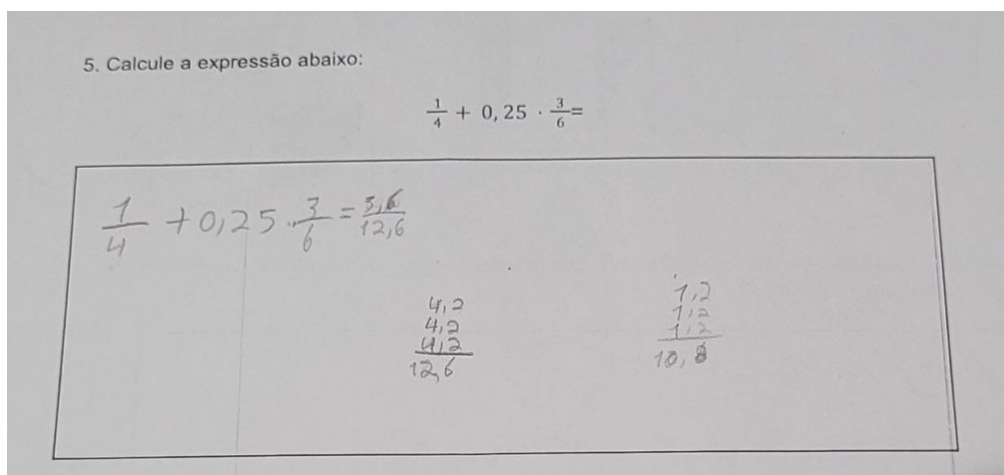 5. Calcule a expressão abaixo:
1/4 + 0,25 · 3/6 =
1/4 + 0,25 · 3/6 = 3,6/12,6
4,2
4,2
4,2
12,6
1,2
1,2
1,2